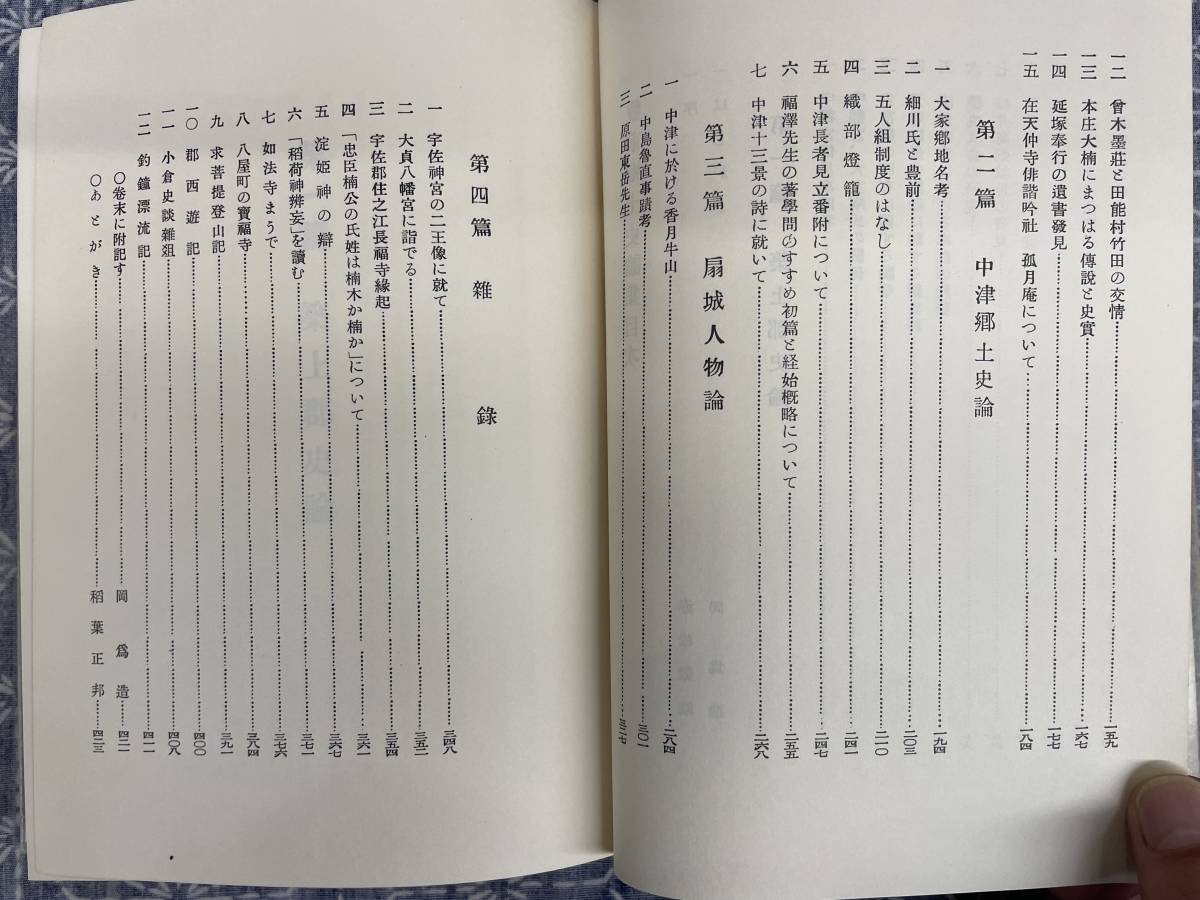 一二 曾木墨莊と田能村竹田の交情……一五九
一三 本庄大楠にまつはる傳說と史實……一六七
一四 延塚奉行の遺書發見……一七七
一五 在天仲寺俳諧吟社 孤月庵について……一八四
第二篇 中津鄉土史論
一 大家鄉地名考……一九四
二 細川氏と豊前……二〇三
三 五人組制度のはなし……二一〇
四 織部燈籠……二四一
五 中津長者見立番附について……二四七
六 福澤先生の著學問のすすめ初篇と経始概略について……二五五
七 中津十三景の詩に就いて……二六八
第三篇 扇城人物論
一 中津に於ける香月牛山……二八四
二 中島魯直事蹟考……三〇一
三 原田東岳先生……三二七
第四篇 雜錄
一 宇佐神宮の二王像に就て……三四八
二 大貞八幡宮に詣でる……三五二
三 宇佐郡住之江長福寺緣起……三五四
四 「忠臣楠公の氏姓は楠木か楠か」について……三六一
五 淀姫神の辯……三六七
六 「稻荷神辨妄」を讀む……三七一
七 如法寺まうで……三七六
八 八屋町の寶福寺……三八四
九 求菩提登山記……三九一
一〇 郡西遊記……四〇〇
一一 小倉史談雜俎……四〇八
一二 釣鐘漂流記……四一一
〇卷末に附記す……岡爲造……四二一
〇あとがき……稻葉正邦……四二三